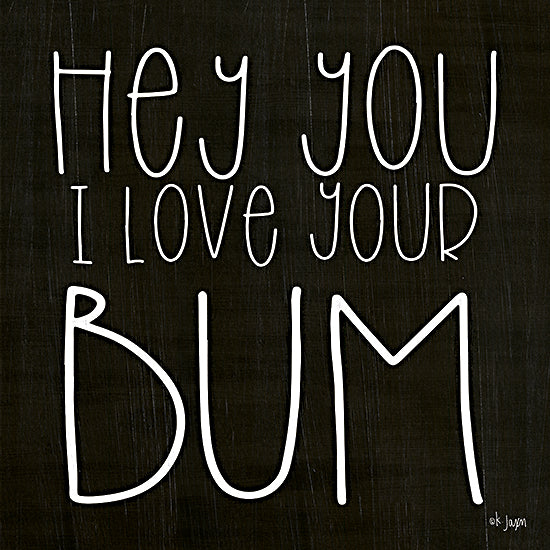 Hey you
I love your
BUM
©K. Jaxn